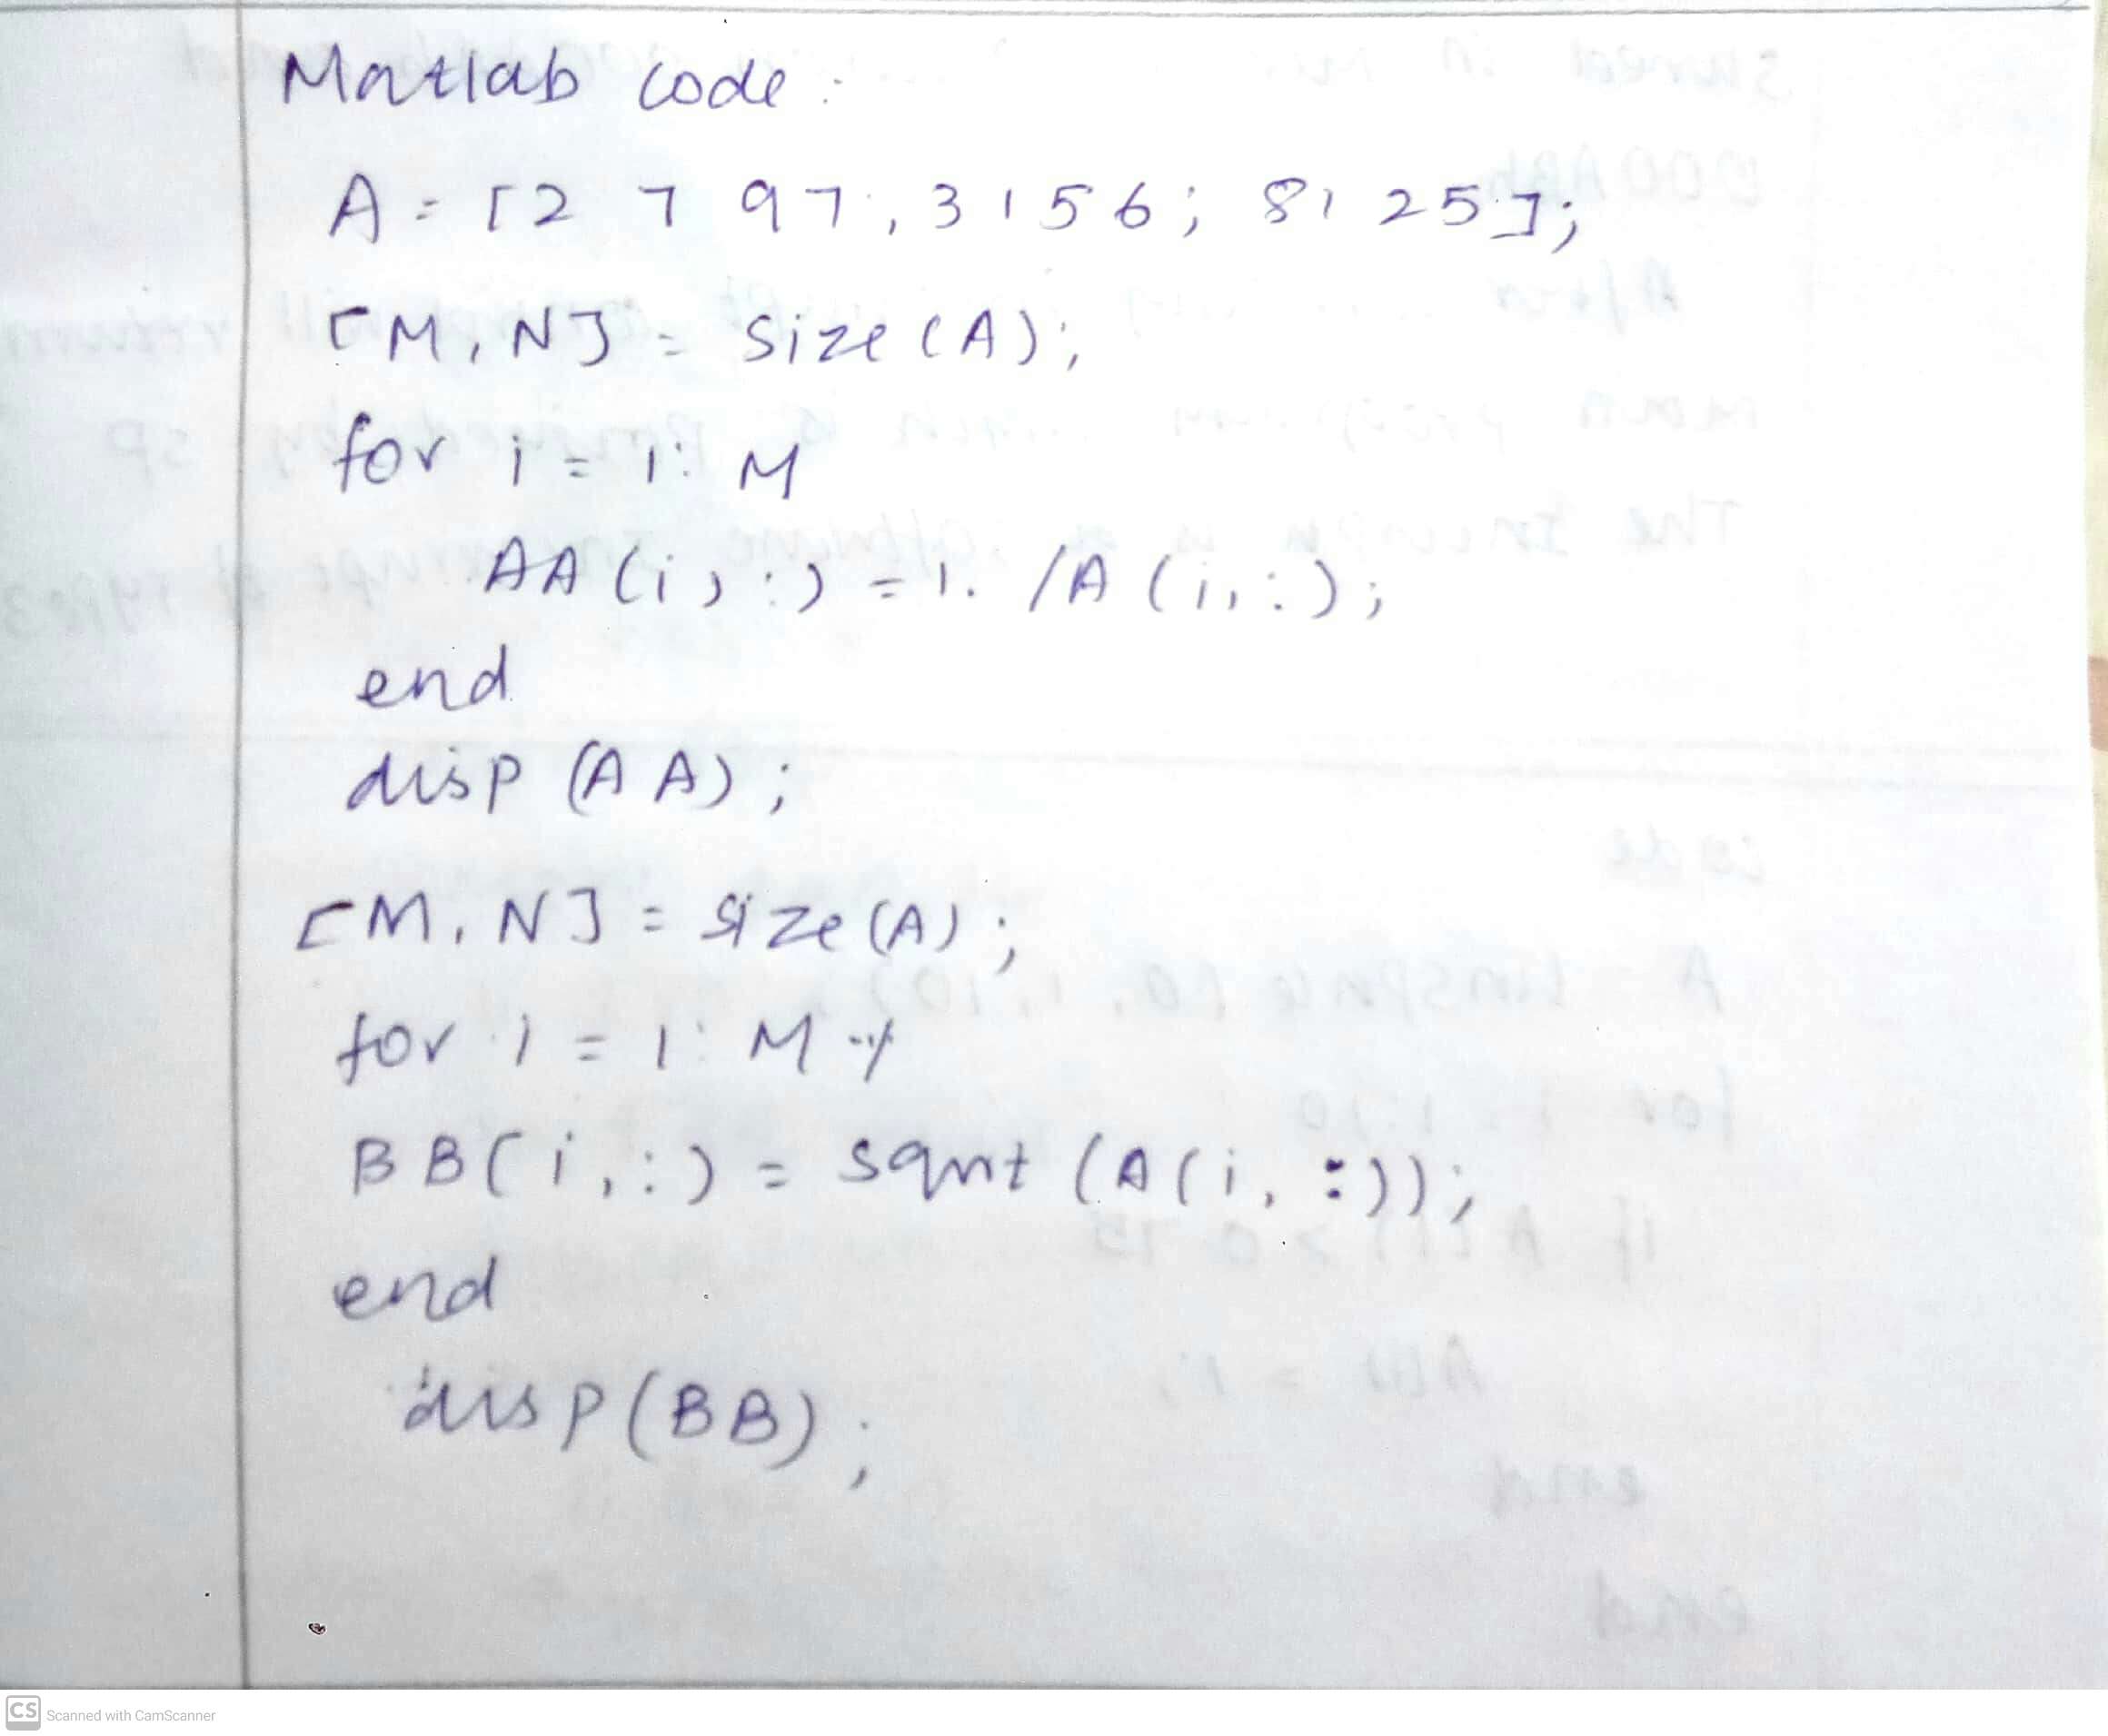 Matlab code:
A = [2 7 9 7; 3 1 5 6; 8 1 2 5];
[M,N] = size(A);
for i = 1:M
AA(i,:) = 1./A(i,:);
end
disp(AA);
[M,N] = size(A);
for i = 1:M
BB(i,:) = sqrt(A(i,:));
end
disp(BB);
CS Scanned with CamScanner